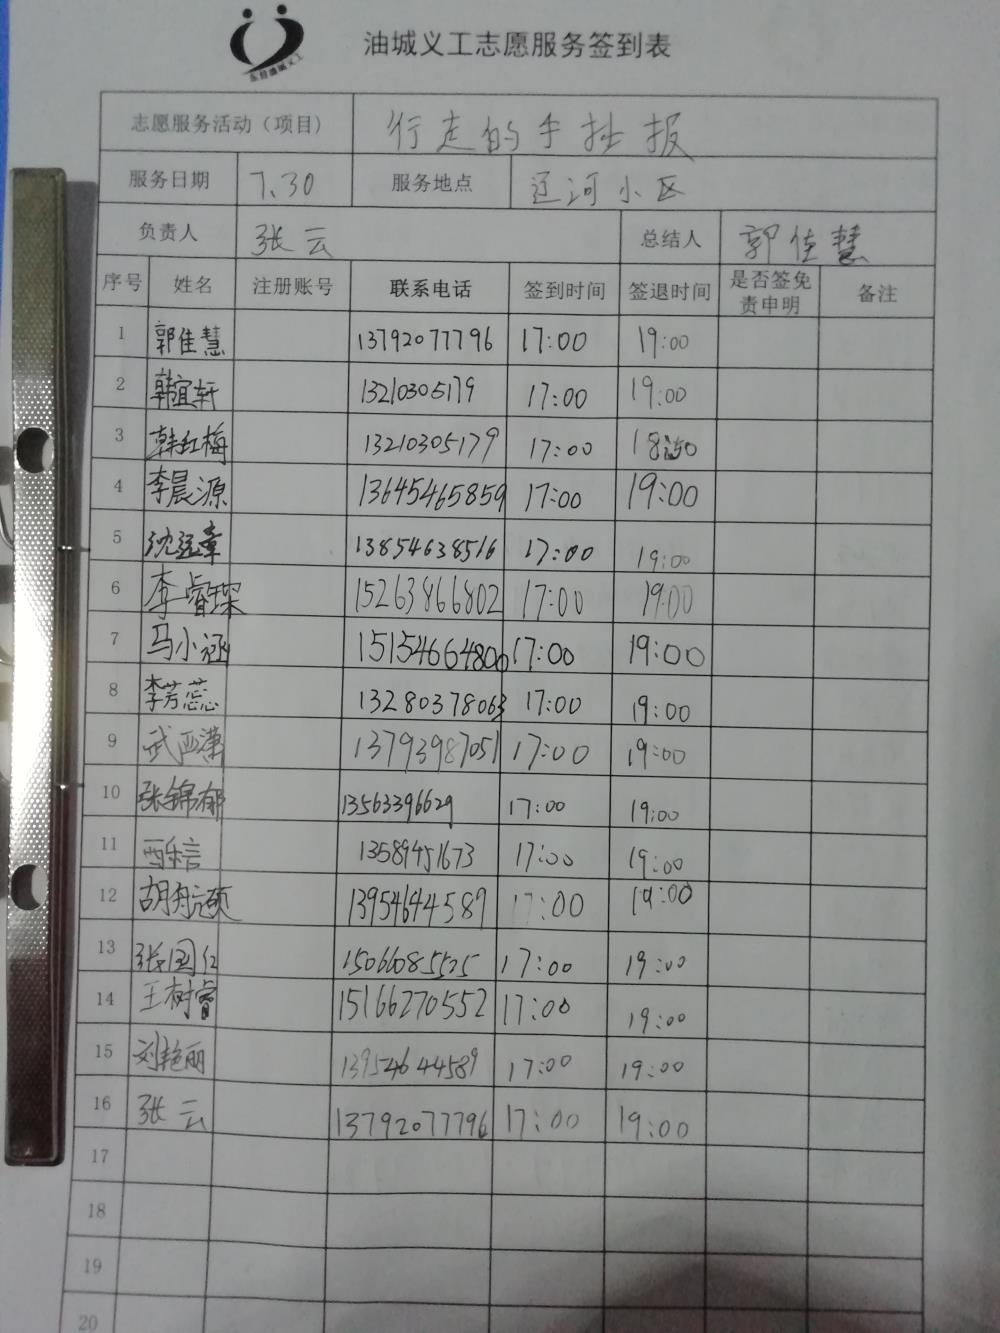 油城义工志愿服务签到表
志愿服务活动（项目） 行走的手抄报
服务日期 7.30 服务地点 辽河小区
负责人 张云 总结人 郭佳慧
序号 姓名 注册账号 联系电话 签到时间 签退时间 是否签免责申明 备注
1 郭佳慧 13792077796 17:00 19:00
2 韩宜轩 13210305179 17:00 19:00
3 韩红梅 13210305179 17:00 18:50
4 李晨源 13645465859 17:00 19:00
5 沈廷章 13854638516 17:00 19:00
6 李睿琛 15263866802 17:00 19:00
7 马小涵 15154664800 17:00 19:00
8 李芳蕊 13280378063 17:00 19:00
9 武西潇 13793987051 17:00 19:00
10 张锦郁 13563396629 17:00 19:00
11 13589451673 17:00 19:00
12 胡航硕 13954644589 17:00 19:00
13 张国仁 15066085525 17:00 19:00
14 王树睿 15166270552 17:00 19:00
15 刘艳丽 13954644589 17:00 19:00
16 张云 13792077796 17:00 19:00
17
18
19
20